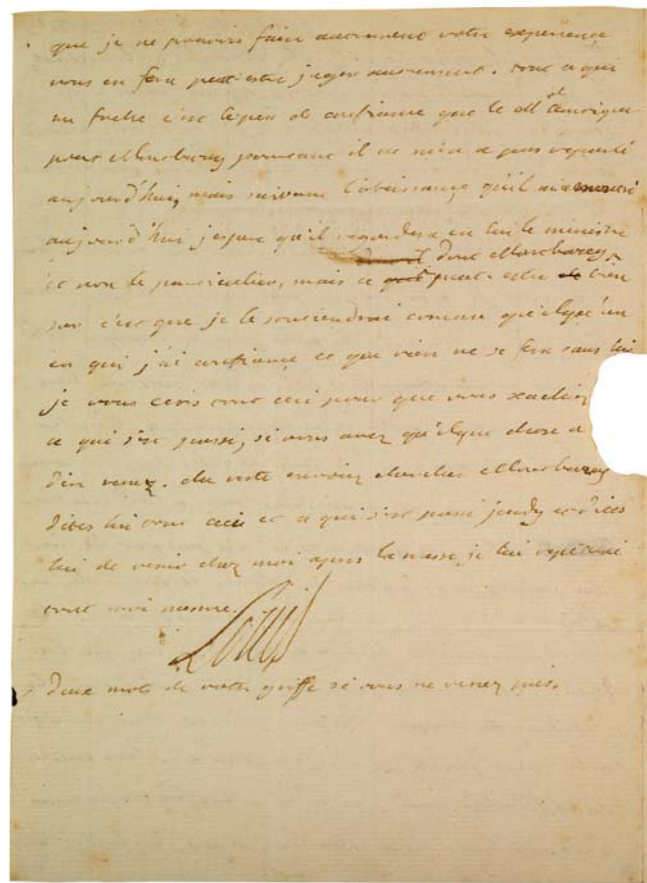 que je ne pouvois faire autrement votre experience
vous en fera peut estre juger autrement. tout ce qui
me fache c'est le peu de confiance que le
pour Monsbarey il ne m'en a pas reparlé
aujourd'hui, mais suivant l'obeissance qu'il m'a montré
aujourd'hui j'espere qu'il regardera en lui le ministre
et non le particulier, mais ce dont Monsbarey peut estre bien
sur c'est que je le soutiendrai comme quelqu'un
en qui j'ai confiance et que rien ne se fera sans lui
je vous ecris tout ceci pour que vous sachiez
ce qui s'est passé, si vous avez quelque chose a
dire venez. du reste envoiez chercher Monsbarey
dites lui tout ceci et ce qui s'est passé jeudy et dites
lui de venir chez moi apres la messe, je lui repeterai
tout moi mesme.
Louis
deux mots de votre griffe si vous ne venez pas.